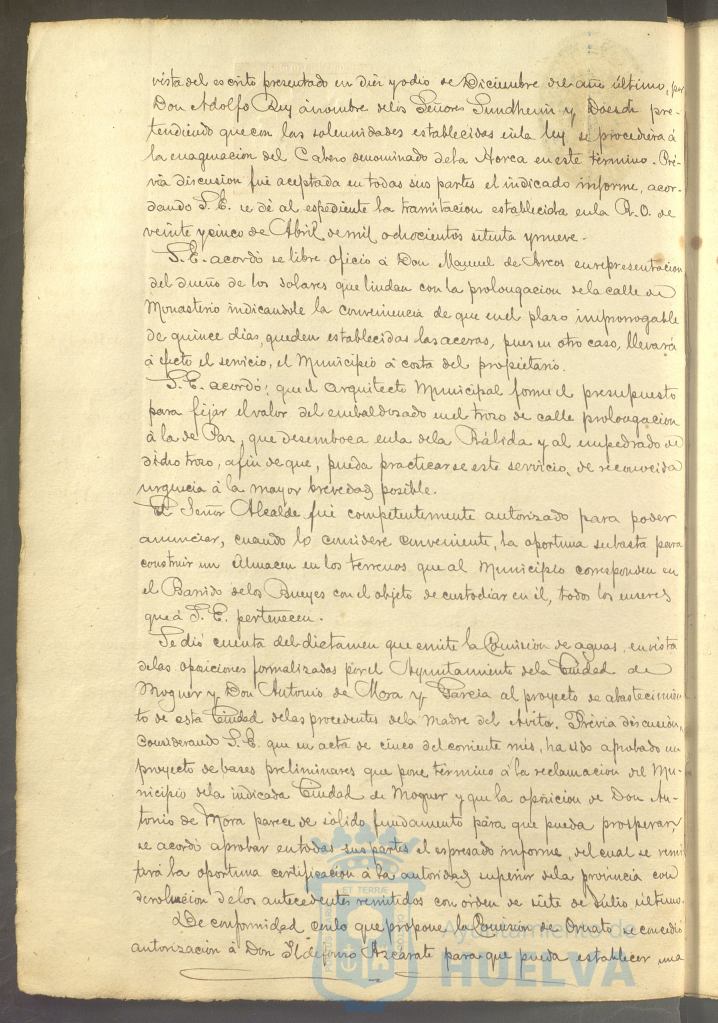 vista del escrito presentado en diez y ocho de Diciembre del año último, por
Don Adolfo Rey á nombre de los Señores Sundheim y Doesch pre-
tendiendo que con las solemnidades establecidas en la ley se procediera á
la enagenacion del Cabezo denominado de la Horca en este término. Pré-
via discusion fué aceptada en todas sus partes el indicado informe, acor-
dando S.E. se dé al espediente la tramitacion establecida en la R.O. de
veinte y cinco de Abril de mil ochocientos setenta y nueve.
S.E. acordó se libre oficio á Don Manuel de Arcos en representacion
del dueño de los solares que lindan con la prolongacion de la calle de
Monasterio indicandole la conveniencia de que en el plazo improrrogable
de quince dias, queden establecidas las aceras, pues en otro caso, llevará
á efecto el servicio, el Municipio á costa del propietario.
S.E. acordó: que el Arquitecto Municipal forme el presupuesto
para fijar el valor del embaldosado en el trozo de calle prolongacion
á la de Paz, que desemboca en la de la Rábida y al empedrado de
dicho trozo, afin de que, pueda practicarse este servicio, de reconocida
urgencia á la mayor brevedad posible.
El Señor Alcalde fué competentemente autorizado para poder
anunciar, cuando lo considere conveniente, la oportuna subasta para
construir un Almacen en los terrenos que al Municipio corresponden en
el Barrido de los Bueyes con el objeto de custodiar en él, todos los enseres
que á S.E. pertenecen.
Se dió cuenta del dictamen que emite la Comision de aguas, en vista
de las oposiciones formalizadas por el Ayuntamiento de la Ciudad de
Moguer y Don Antonio de Mora y Garcia al proyecto de abastecimien-
to de esta Ciudad de las procedentes de la madre del Avitor. Prévia discusion,
considerando S.E. que en acta de cinco del corriente mes, ha sido aprobado un
proyecto de bases preliminares que pone término á la reclamacion del Mu-
nicipio de la indicada Ciudad de Moguer y que la oposicion de Don An-
tonio de Mora parece de sólido fundamento para que pueda prosperar,
se acordó aprobar en todas sus partes el espresado informe, del cual se remi-
tirá la oportuna certificacion á la autoridad superior de la provincia con
devolucion de los antecedentes remitidos con orden de siete de Julio último.
De conformidad con lo que propone la Comision de Ornato se concedió
autorizacion á Don Ildefonso Azcárate para que pueda establecer una
ET TERRÆ
Ayuntamiento de
HUELVA